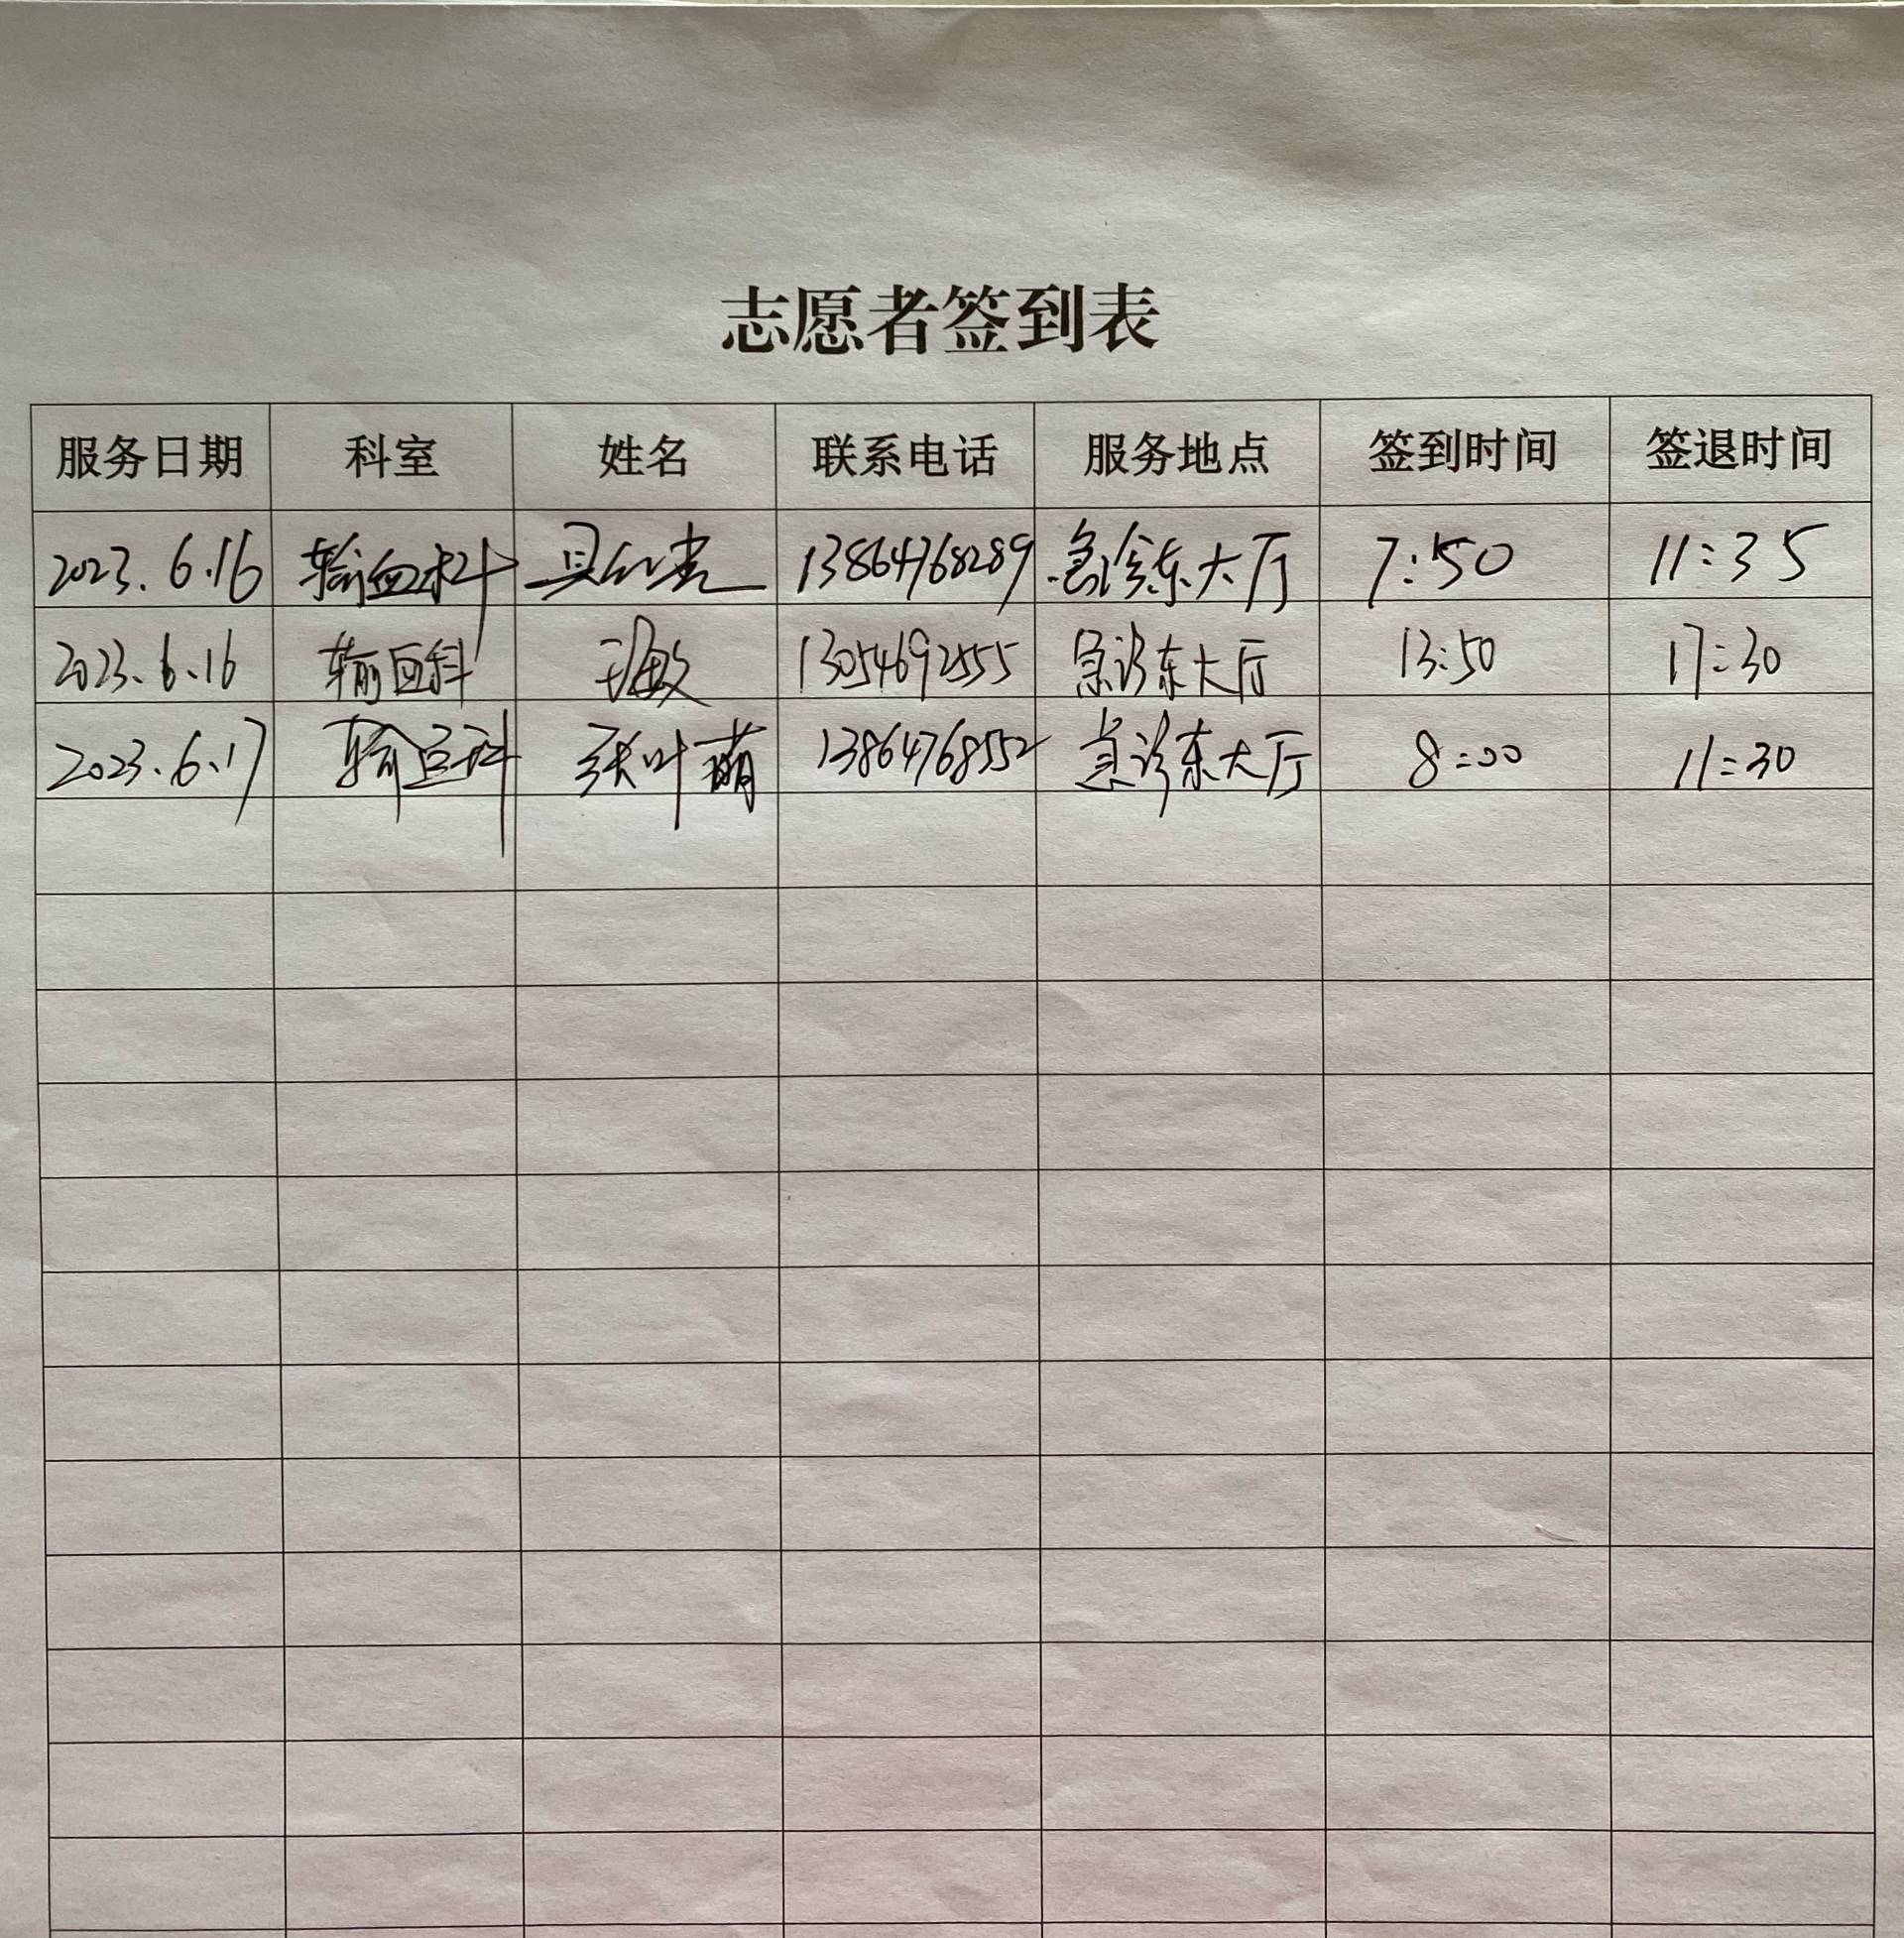 志愿者签到表
服务日期 科室 姓名 联系电话 服务地点 签到时间 签退时间
2023.6.16 输血科 13864768289 急诊东大厅 7:50 11:35
2023.6.16 输血科 13054692555 急诊东大厅 13:50 17:30
2023.6.17 输血科 张叶萌 13864768552 急诊东大厅 8:00 11:30